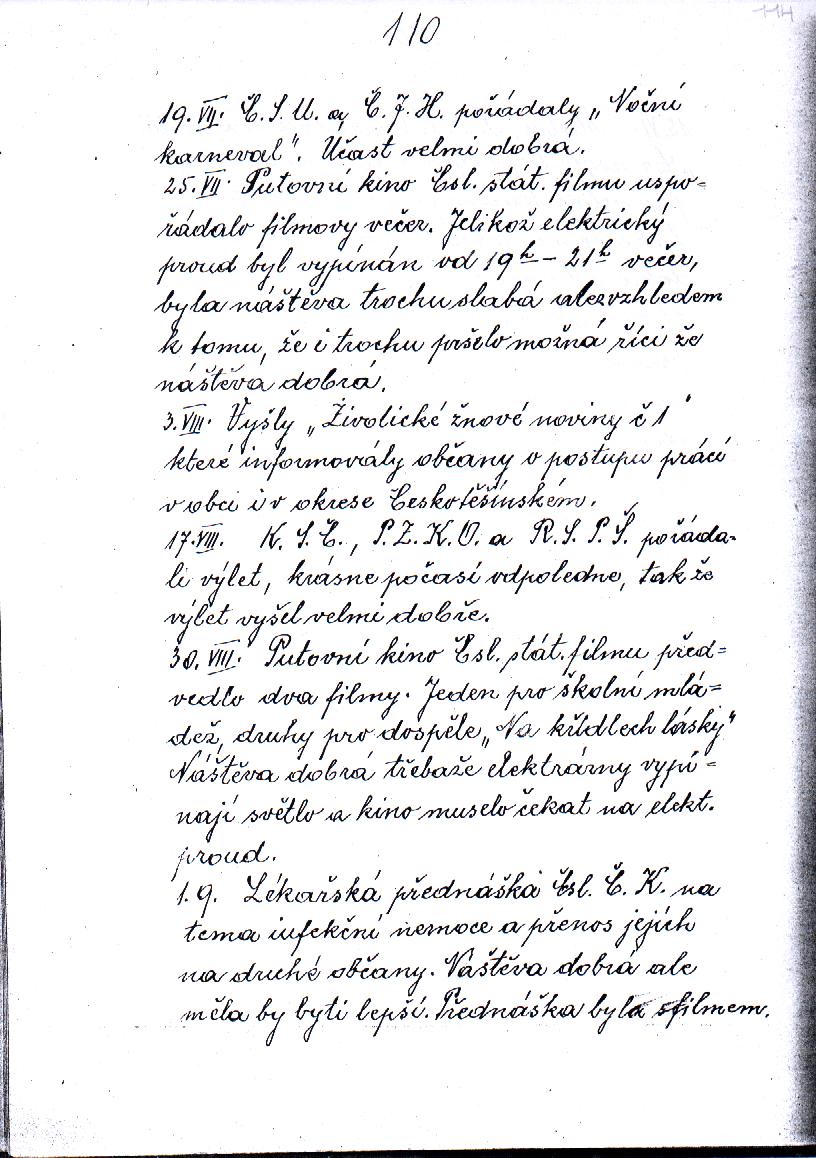 110
114
19. VII. Č. S. U. a Č. J. H. pořádaly „Noční
karneval". Učast velmi dobrá.
25. VII. Putovní kino Čsl. stát. filmu uspo=
řádalo filmovy večer. Jelikož elektrický
proud byl vypínán od 19h – 21h večer,
byla náštěva trochu slabá ale vzhledem
k tomu, že i trochu pršelo možná říci že
náštěva dobrá.
3. VIII. Vyšly „Živolické žnové noviny č 1"
které informovály občany o postupu prácí
v obci i v okrese Českotěšínském.
17. VIII. K. S. Č., P. Z. K. O. a R. S. P. Š. pořáda-
li výlet, krásne počasí odpoledne, tak že
výlet vyšel velmi dobře.
30. VIII. Putovní kino Čsl. stát. filmu před=
vedlo dva filmy. Jeden pro školní mlá=
dež, druhy pro dospěle „Na křídlech lásky"
Náštěva dobrá třebaže elektrárny vypí=
nají světlo a kino muselo čekat na elekt.
proud.
1. 9. Lékařská přednáška Čsl. Č. K. na
tema infekční nemoce a přenos jejích
na druhé občany. Naštěva dobrá ale
měla by byti lepší. Přednáška byla s filmem.